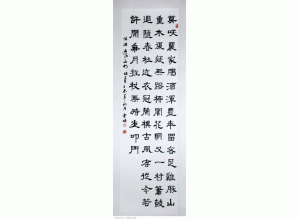 莫笑農家臘酒渾豐年留客足雞豚山
重水複疑無路柳暗花明又一村簫鼓
追隨春社近衣冠簡樸古風存從今若
許閑乘月拄杖無時夜叩門